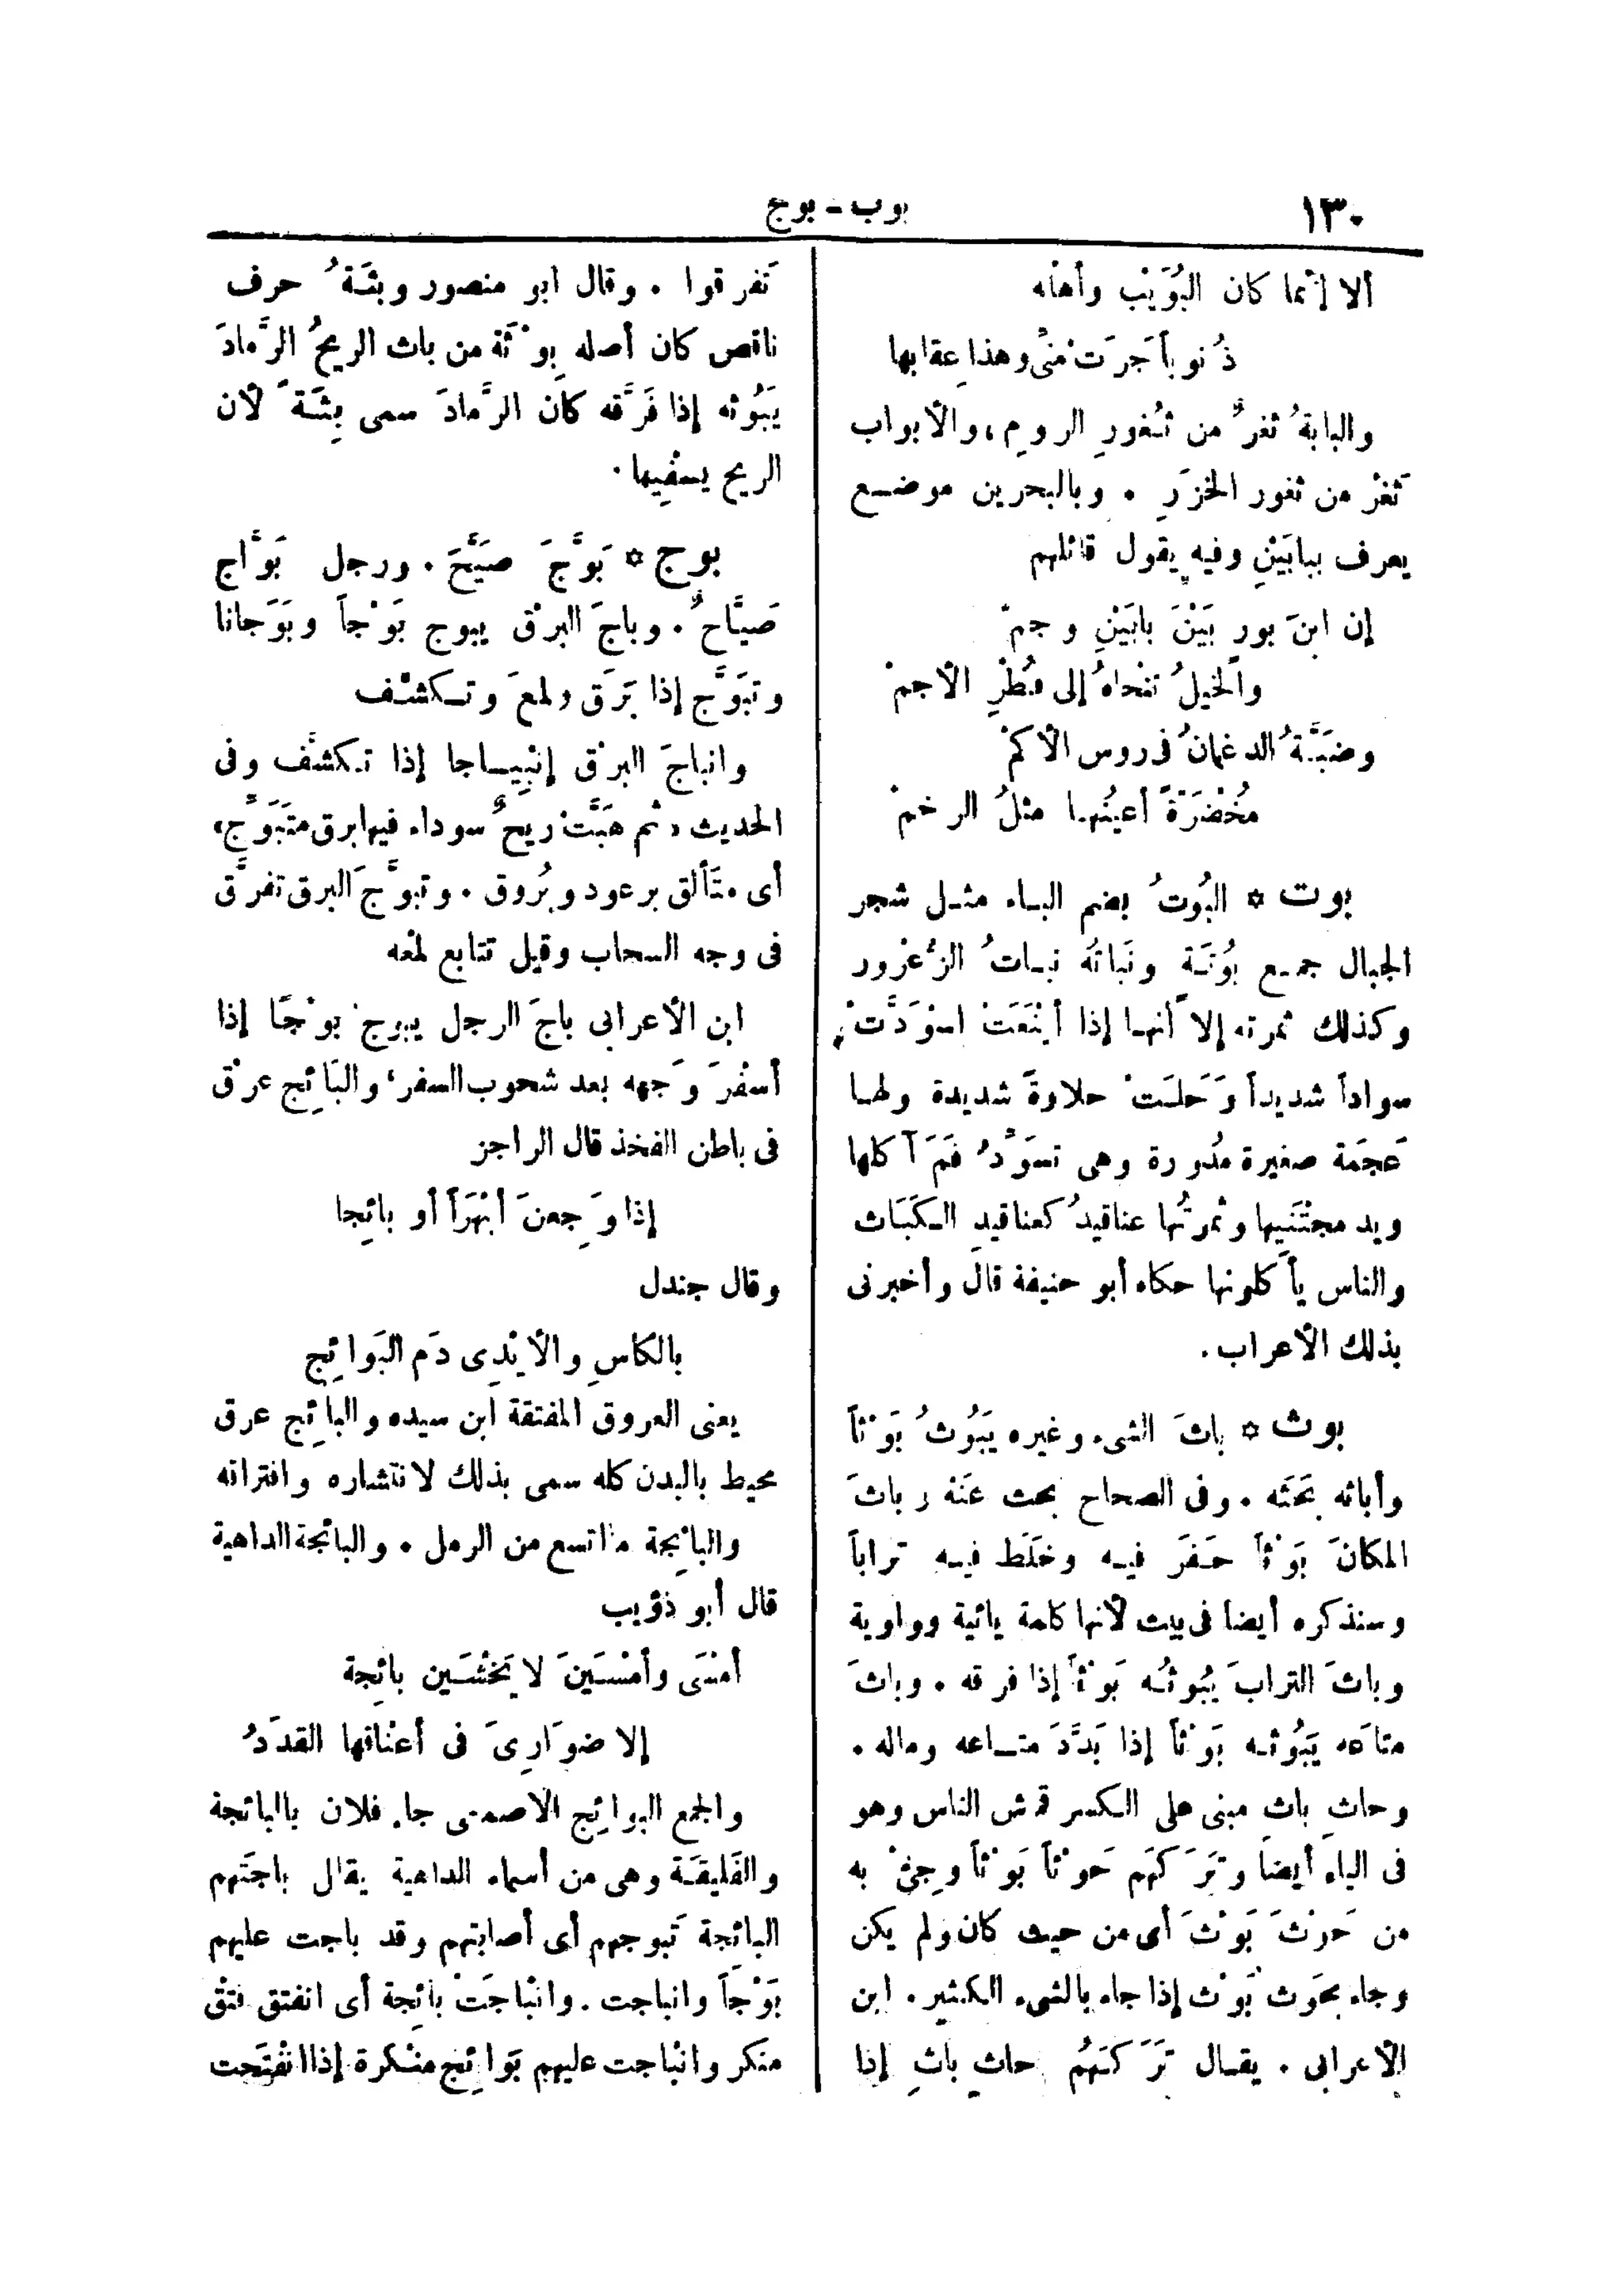 ١٣٠
بوب - بوج
ألا إنما كان البُوَيْب وأهله
ذُنوباً جَرَت منى وهذا عقابها
والبابةُ ثغرٌ من ثغورِ الرومِ، والأبواب
ثغْر من ثغور الخزَرِ . وبالبحرين موضـع
يعرف ببابَيْنِ وفيه يقول قائلهم
إن ابنَ بورٍ بَيْنَ بابَيْنِ وجمْ
والخيلُ تنحاهُ إلى قُطْرِ الأجمْ
وضَبَّةُ الدغمانُ فى روس الأكمْ
مُخْضَرَّةً أعيُنُها مثلُ الرخمْ
بوت * البُوتُ بضم البـاء مثـل شجر
الجبال جمـع بُوتَـة ونَباتُه نبـاتُ الزُّعْرور
وكذلك ثمرته إلا أنهـا إذا أيْنَعَتْ اسْوَدَّتْ
سواداً شديداً وَحَلَـتْ حلاوةً شديدة ولهـا
عَجَمَة صغيرة مُدورة وهى تسوّدُ فَمَ آكلها
ويد مجتَنِيها وثمرتُها عناقيدُ كعناقيدِ الـكَبَاث
والناس يأكلونها حكاه أبو حنيفة قال وأخبرنى
بذلك الأعراب .
بوث * باثَ الشىء وغيره يَبُوثُ بَوْثاً
وأباثه بَحَثَه . وفى الصحاح بحث عَنْه وباثَ
المكانَ بَوْثاً حـفَرَ فيـه وخلَط فيـه تراباً
وسنذكره أيضا فى بيث لأنها كلمة يائية وواوية
وباثَ الترابَ يَبُوثُـه بَوْثاً إذا فرقه . وباثَ
متاعَه يَبُوثـه بَوْثاً إذا بَدَّدَ متـاعه وماله .
وحاثِ باثِ مبنى على الـكسر قماش الناس وهو
فى الياء أيضا وتَرَكَهَم حَوْثاً بَوْثاً وجِئْ به
من حَوْثَ بَوْثَ أى من حيث كان ولم يكن
وجاء بحَوْث بَوْث إذا جاء بالشىء الـكثير . ابن
الأعرابى . يقـال تَرَكـتُهُم حاثِ باثِ إذا
تفرقوا . وقال ابو منصور وبثَـةُ حرف
ناقص كان أصله بِوْثة من باث الريحُ الرَّمادَ
يَبُوثه إذا فَرَّقه كأن الرَّمادَ سمى بِثَـةً لأن
الريح يسفيها .
بوج * بَوَّجَ صَيَّحَ . ورجل بَوَّاج
صَيَّاحٌ . وباجَ البرْق يبوج بَوْجاً وبَوَجانا
وتبَوَّج إذا بَرَق ولمعَ وتـكشـف
وانباجَ البرْق إنْبِيـاجا إذا تـكشَّف وفى
الحديث «ثم هبَّتْ ريحٌ سوداء فيها برق متَبَوِّج»
أى متَألق برعود وبُروق . وتبوَّجَ البرق تفرَّق
فى وجه السحاب وقيل تتابع لمْعه
ابن الأعرابى باجَ الرجل يبوج بَوْجًا إذا
أسفَرَ وَجهه بعد شحوب السفر، والبَائِج عرْق
فى باطن الفخذ قال الراجز
إذا وَجِعنَ أبْهَرَاً أو بائجِا
وقال جندل
بالكاسِ والأيْدِى دَم البَوائِج
يعنى العروق المفتقة ابن سيده والبائِج عرق
محيط بالبدن كله سمى بذلك لانتشاره وافتراقه
والبائِجة ما اتسع من الرمل . والبائجة الداهية
قال أبو ذؤيب
أمسَى وأمْسَـيْنَ لا يَخْشَـين بائِجة
إلا ضوَارِىَ فى أعناقها القدَدُ
والجمع البوائِج الأصمعى جاء فلان بالبائجة
والفَليقَـة وهى من أسماء الداهية يقال باجتَهم
البائِجة تَبوجهم أى أصابتهم وقد باجت عليهم
بَوْجاً وانباجت . وانْباجَتْ بائِجة أى انفتق فتْق
منكر وانْباجت عليهم بَوائِج منـكرة إذا انفتَحت